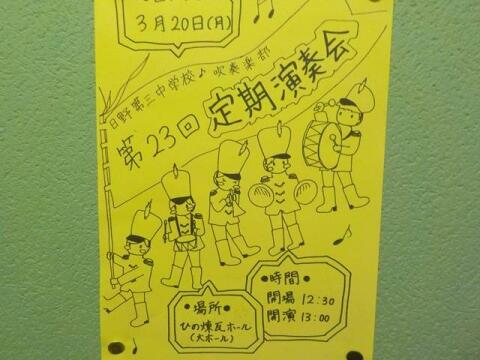 3月20日(月)
日野第三中学校♪吹奏楽部
第23回
定期演奏会
●場所●
ひの煉瓦ホール
(大ホール)
●時間●
開場 12:30
開演 13:00